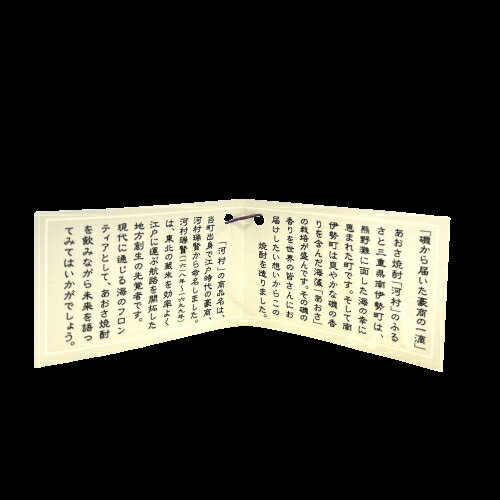 「磯から届いた豪商の一滴」
あおさ焼酎「河村」のふる
さと三重県南伊勢町は、
熊野灘に面した海の幸に
恵まれた町です。そして南
伊勢町は爽やかな磯の香
りを含んだ海藻「あおさ」
の栽培が盛んです。その磯の
香りを世界の皆さんにお
届けしたい想いからこの
焼酎を造りました。
「河村」の商品名は、
当町出身で江戸時代の豪商、
河村瑞賢から命名しました。
河村瑞賢(一六一八年～一六九九年)
は、東北の蔵米を効率よく
江戸に運ぶ航路を開拓した
地方創生の先覚者です。
現代に通じる海のフロン
ティアとして、あおさ焼酎
を飲みながら未来を語っ
てみてはいかがでしょう。